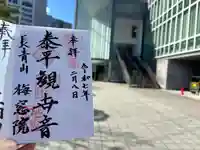 奉拝
参拝
令和七年
二月八日
泰平観世音
長青山 梅窓院